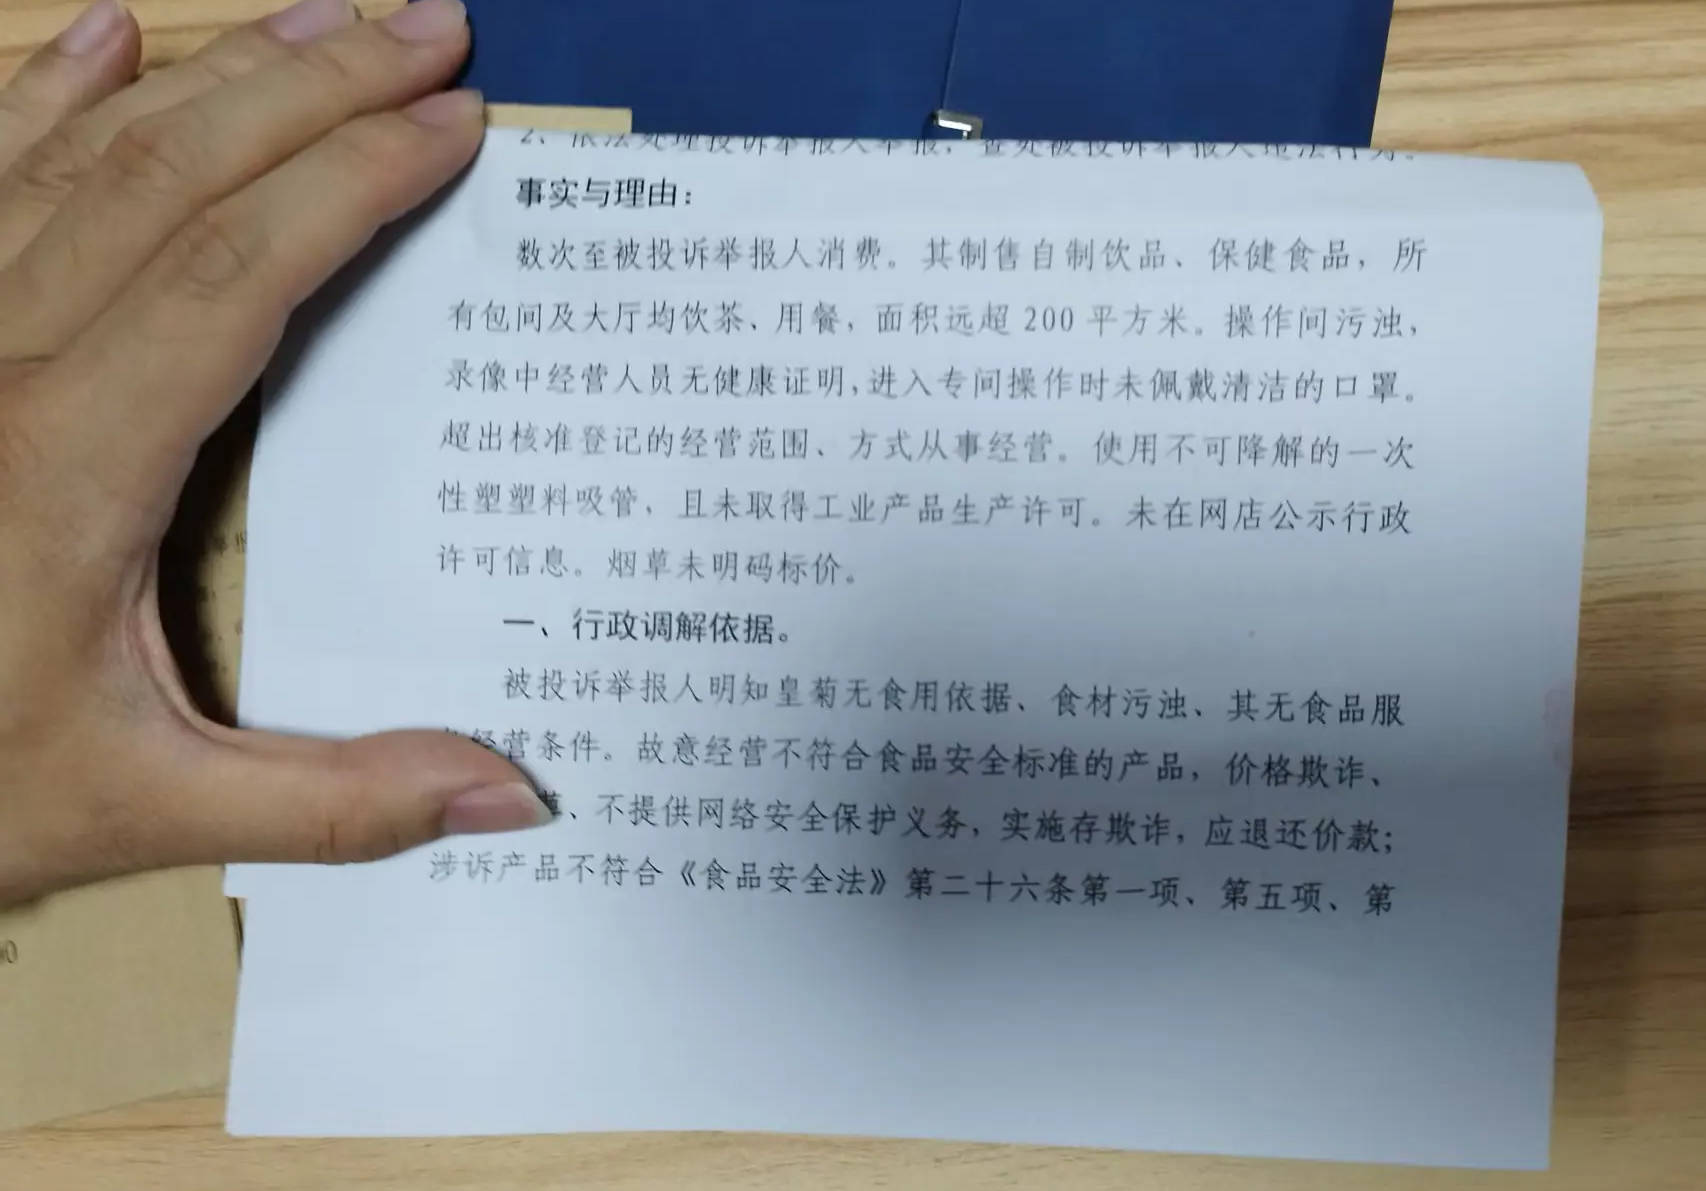 2、依法处理投诉举报人举报，查处被投诉举报人违法行为。
事实与理由：
数次至被投诉举报人消费。其制售自制饮品、保健食品，所
有包间及大厅均饮茶、用餐，面积远超200平方米。操作间污浊，
录像中经营人员无健康证明，进入专间操作时未佩戴清洁的口罩。
超出核准登记的经营范围、方式从事经营。使用不可降解的一次
性塑塑料吸管，且未取得工业产品生产许可。未在网店公示行政
许可信息。烟草未明码标价。
一、行政调解依据。
被投诉举报人明知皇菊无食用依据、食材污浊、其无食品服
经营条件。故意经营不符合食品安全标准的产品，价格欺诈、
、不提供网络安全保护义务，实施存欺诈，应退还价款；
涉诉产品不符合《食品安全法》第二十六条第一项、第五项、第